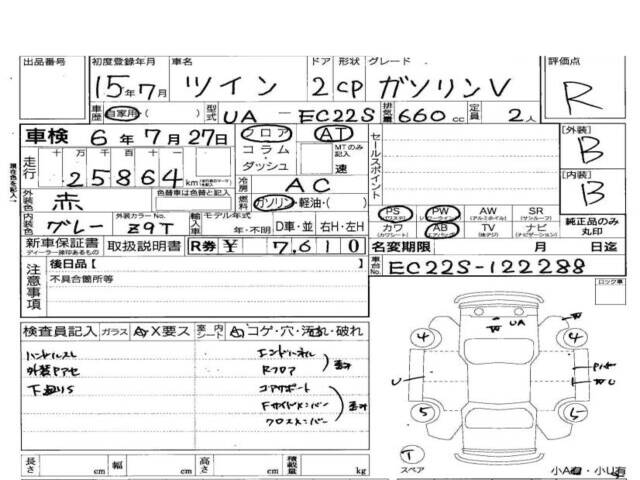 出品番号 初度登録年月 車名 ドア 形状 グレード 評価点
15年7月 ツイン 2 CP ガソリンV R
車歴 自家用( ) 型式 UA - EC22S 排気量 660 cc 定員 2人
車検 6年7月27日 フロア AT セールスポイント [外装] B
コラム MTのみ記入
走行 十万 万 千 百 十 ダッシュ 速
25864 km [内装] B
外装色 赤 色替車は色替と記入 冷房 AC
燃料 ガソリン・軽油・( ) PS PW AW SR
(パワステ) (パワーウィンドウ) (アルミホイル) (サンルーフ)
内装色 グレー 外装カラーNo. Z9T 輸入車 モデル年式 年・不明 D車・並 右H・左H カワ AB TV ナビ 純正品のみ丸印
(カワシート) (エアバッグ) (映デ) (ナビゲーション)
新車保証書 取扱説明書 R券 ¥ 7,610 名変期限 月 日迄
ディーラー捺印あるもの
注意事項 後日品【 車台No. EC22S-122288
不具合箇所等 ロック車
検査員記入 ガラス A・X要ス 室内シート A・コゲ・穴・汚れ・破れ
ハンドルスレ エンドパネル
外装キズアセ Rフロア 歪み
下廻りS コアサポート
Fサイドメンバー 歪み
クロスメンバー
W W UA
4 4
U W U
5 5
T
スペア 小A有・小U有
長さ cm 幅 cm 高さ cm 積載量 kg
現在色を記入